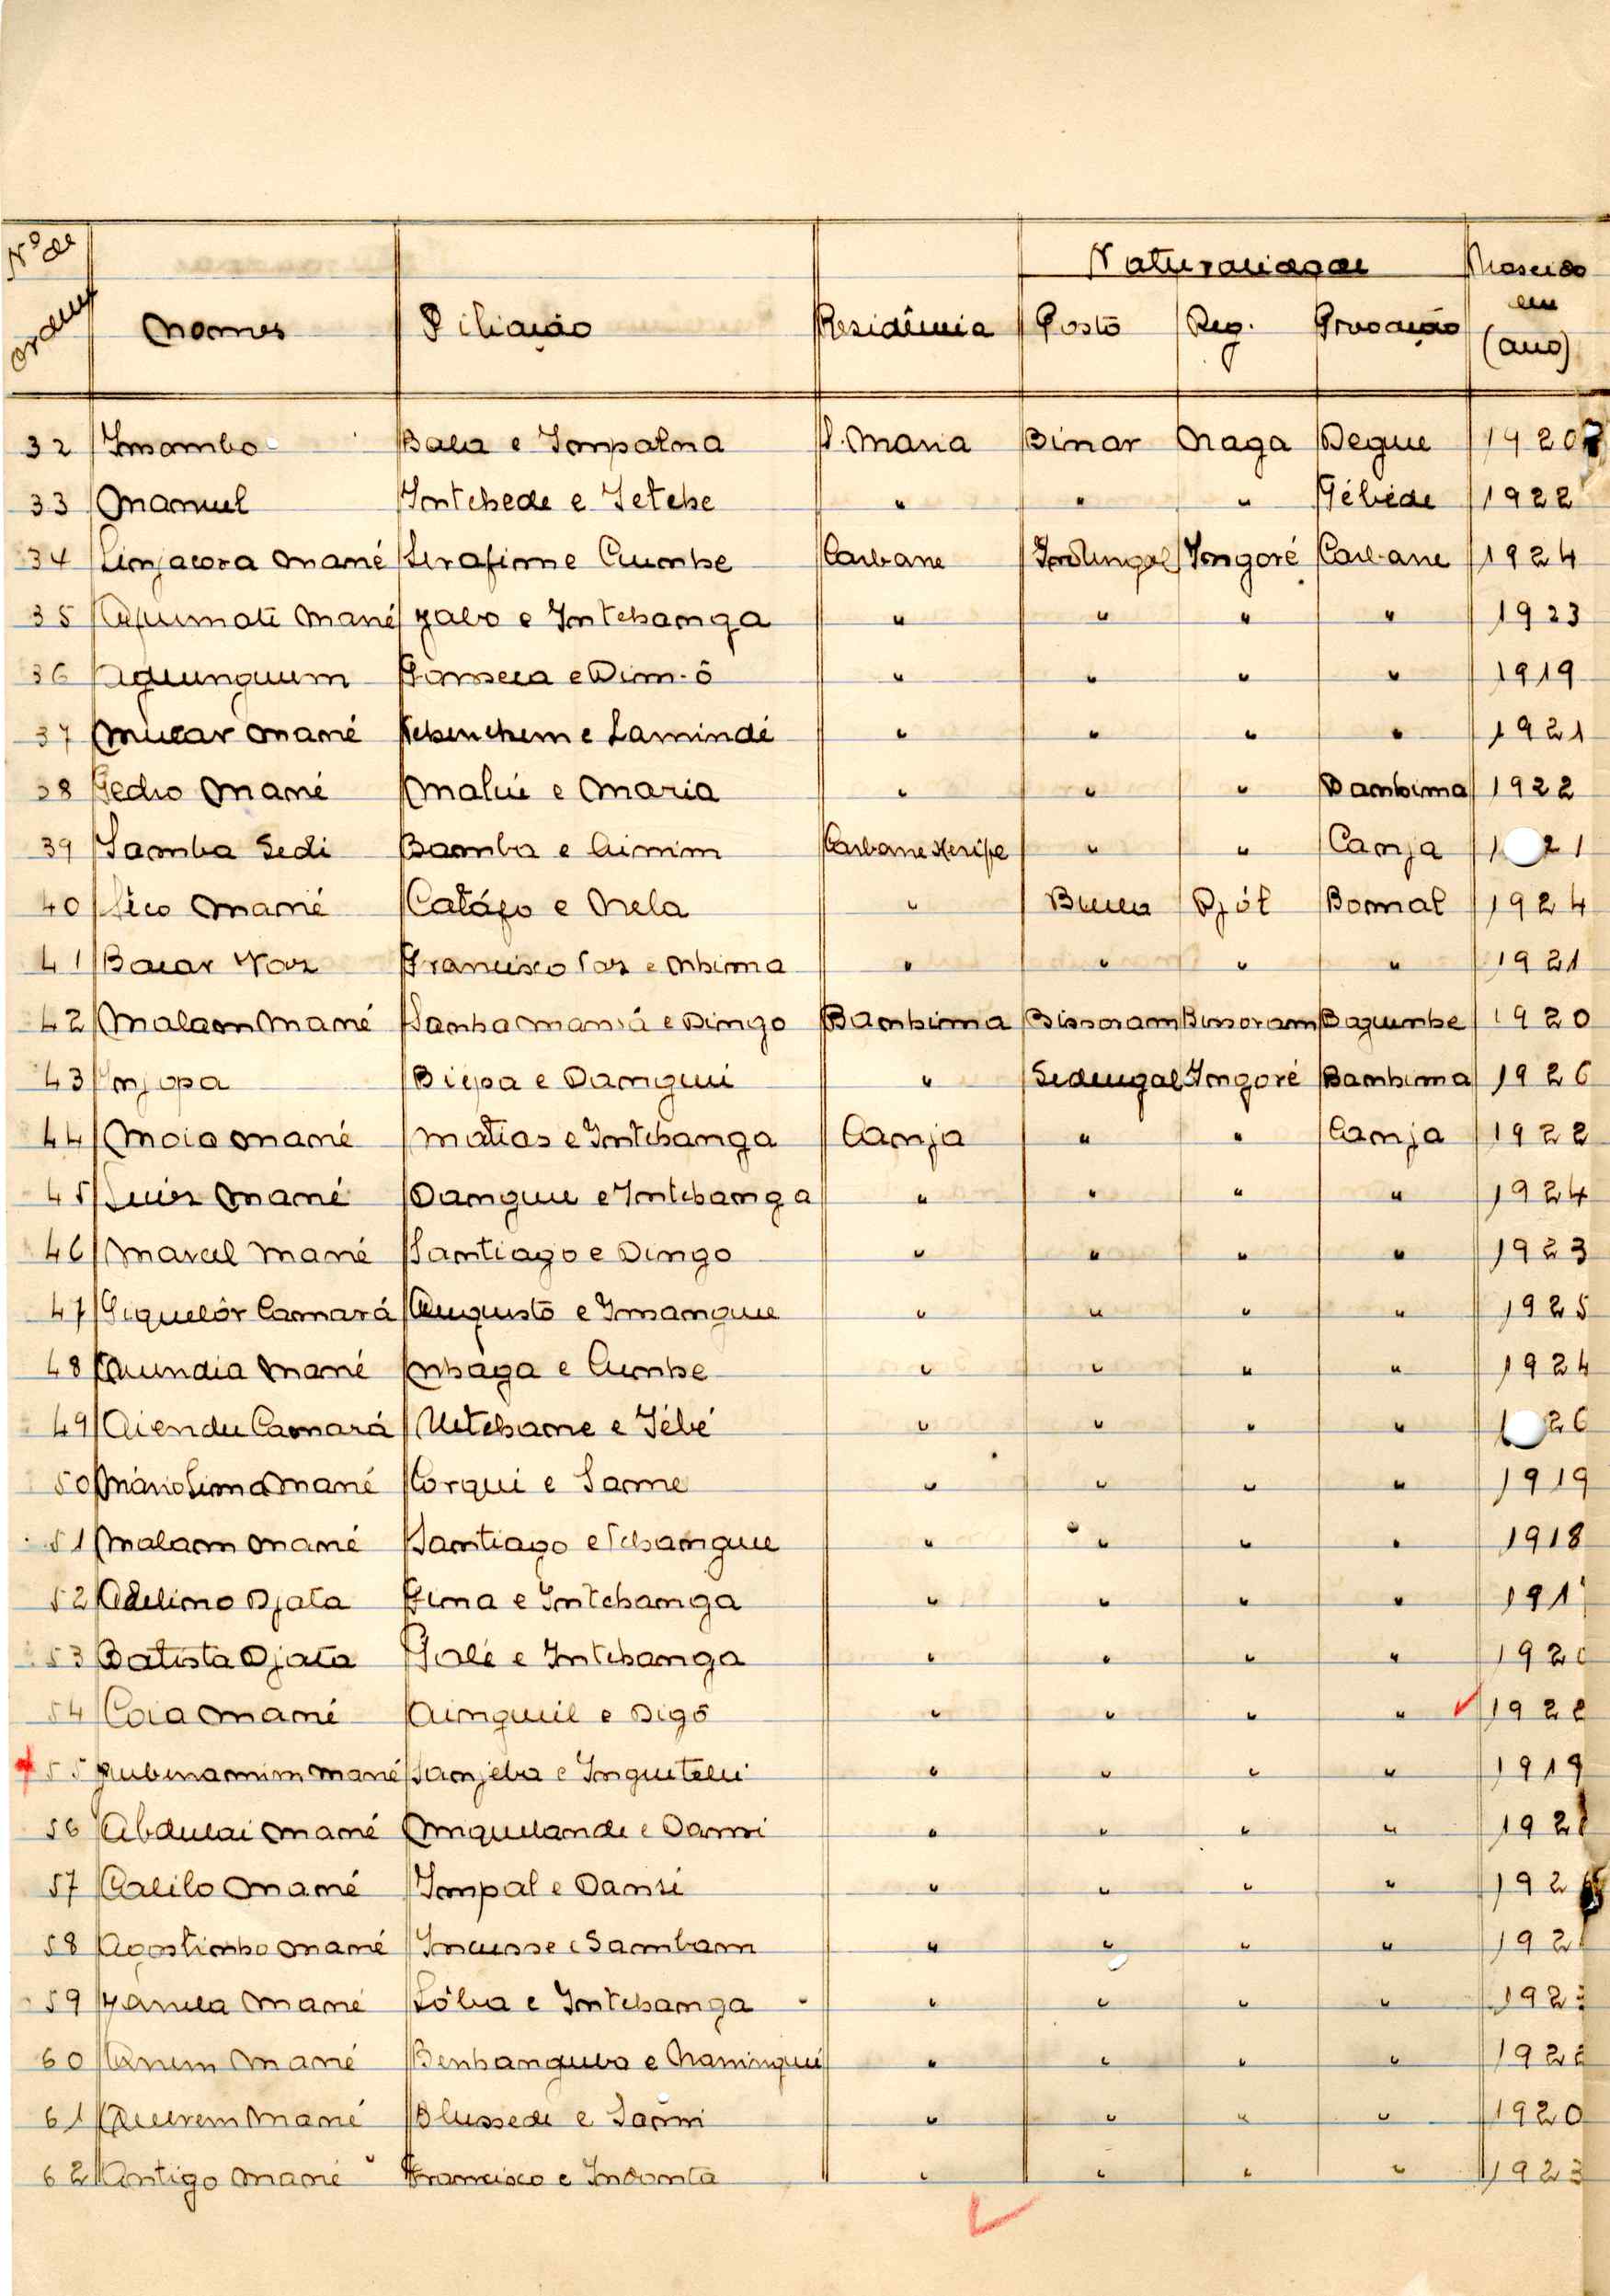 Nº de ordem Nomes Filiação Residência Naturalidade Nascido em (ano)
Posto Reg. Povoação
32 Insombo Bala e Impatna S. Maria Binar Naga Degue 1920
33 Manuel Intchede e Tetche " " " Gébéde 1922
34 Linjacora Mané Serafim e Cumbe Carbane Ingoré Carbane 1924
35 Mané Jabo e Intchanga " " " " 1923
36 Agunguum Fonseca e Dim-ô " " " " 1919
37 Mucar Mané Tchenchem e Lamindé " " " " 1921
38 Pedro Mané Malú e Maria " " " Banhima 1922
39 Samba Sedi Bamba e Aimim Carbane " " Canja 1 21
40 Sico Mané Catáfo e Nela " Bula Djól Bomal 1924
41 Bacar Vaz Francisco Vaz e Nhima " " " " 1921
42 Malam Mané Sanha Mansá e Dingo Banhima Bissoram Bissoram Bagumbe 1920
43 Injopa Biepa e Dangui " Sedengal Ingoré Banhima 1926
44 Moia Mané Matias e Intchanga Canja " " Canja 1922
45 Luiz Mané Dangue e Intchanga " " " " 1924
46 Marcel Mané Santiago e Dingo " " " " 1923
47 Siquelôr Camará Augusto e Insangue " " " " 1925
48 Qundia Mané Nhaga e Cumbe " " " " 1924
49 Aiendu Camará Utchame e Tébé " " " " 1 26
50 Mário Lima Mané Corqui e Same " " " " 1919
51 Malam Mané Santiago e Tchangue " " " " 1918
52 Adelino Djata Fina e Intchanga " " " " 191
53 Batista Djata Galé e Intchanga " " " " 192
54 Coia Mané Ainguil e Digô " " " " 1922
55 Mané Sanjeba e " " " " 1919
56 Abdulai Mané e Danri " " " " 192
57 Calilo Mané Impal e Dansi " " " " 192
58 Agostinho Mané Incusse e Sambam " " " " 192
59 Mané Lóba e Intchanga " " " " 192
60 Mané e Naninqui " " " " 192
61 Querem Mané Blussede e " " " " 1920
62 Antigo Mané Francisco e Indonta " " " " 1923